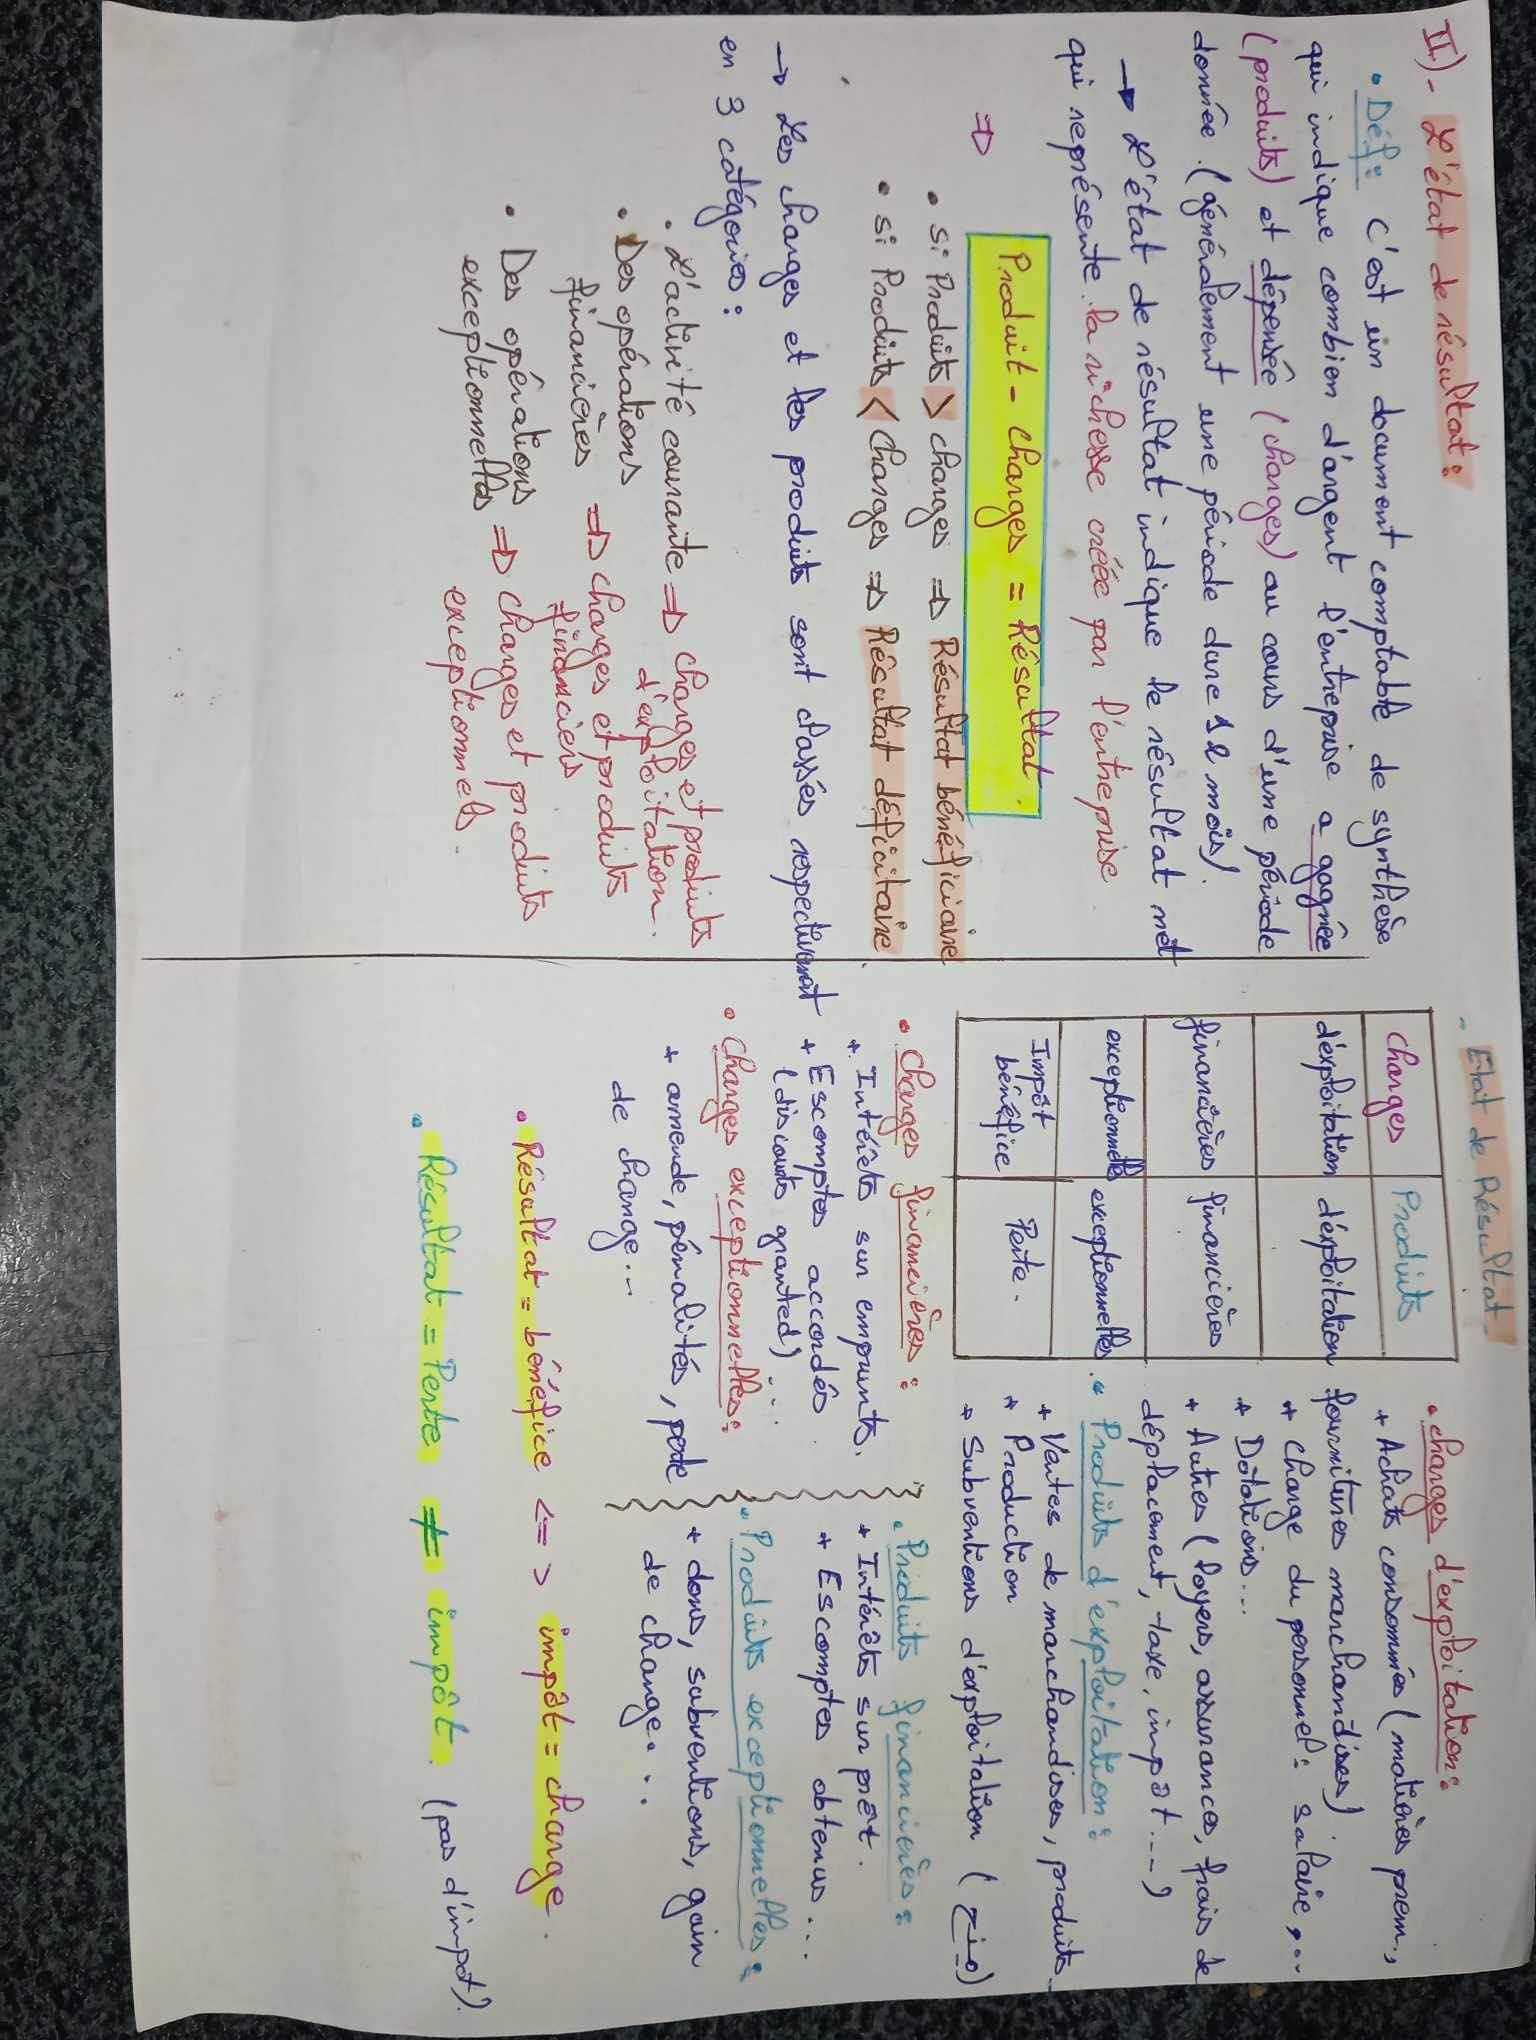 II)- L'état de résultat:
• Déf: C'est un document comptable de synthèse
qui indique combien d'argent l'entreprise a gagnée
(produits) et dépensée (charges) au cours d'une période
donnée. (généralement une période dure 12 mois).
→ L'état de résultat indique le résultat net
qui représente la richesse créée par l'entreprise
⇒ Produit - charges = Résultat.
• si Produits > charges ⇒ Résultat bénéficiaire
• si Produits < Charges ⇒ Résultat déficitaire
→ Les charges et les produits sont classés respectivement
en 3 catégories:
• L'activité courante ⇒ charges et produits
d'exploitation.
• Des opérations
financières ⇒ charges et produits
financiers
• Des opérations
exceptionnelles ⇒ charges et produits
exceptionnels.
- Etat de Résultat -
charges Produits
d'éxploitation d'éxploitation
financières financières
exceptionnelles exceptionnelles
Impôt
bénéfice Perte.
• charges d'exploitation:
+ Achats consommés (matières prem.,
fournitures marchandises).
+ charge du personnel: salaire,...
+ Dotations...
+ Autres (loyers, assurances, frais de
déplacement, taxe, impôt...)
• Produits d'exploitation:
+ Ventes de marchandises, produits
+ Production
+ Subventions d'exploitation (منح)
• Charges financières:
+ Intérêts sur emprunts.
+ Escomptes accordés
(discounts granted)...
• Charges exceptionnelles:
+ amende, pénalités, perte
de change...
• Produits financières:
+ Intérêts sur prêt.
+ Escomptes obtenus...
• Produits exceptionnelles:
+ dons, subventions, gain
de change...
• Résultat = bénéfice <=> impôt = charge.
• Résultat = Perte ≠ impôt. (pas d'impot).